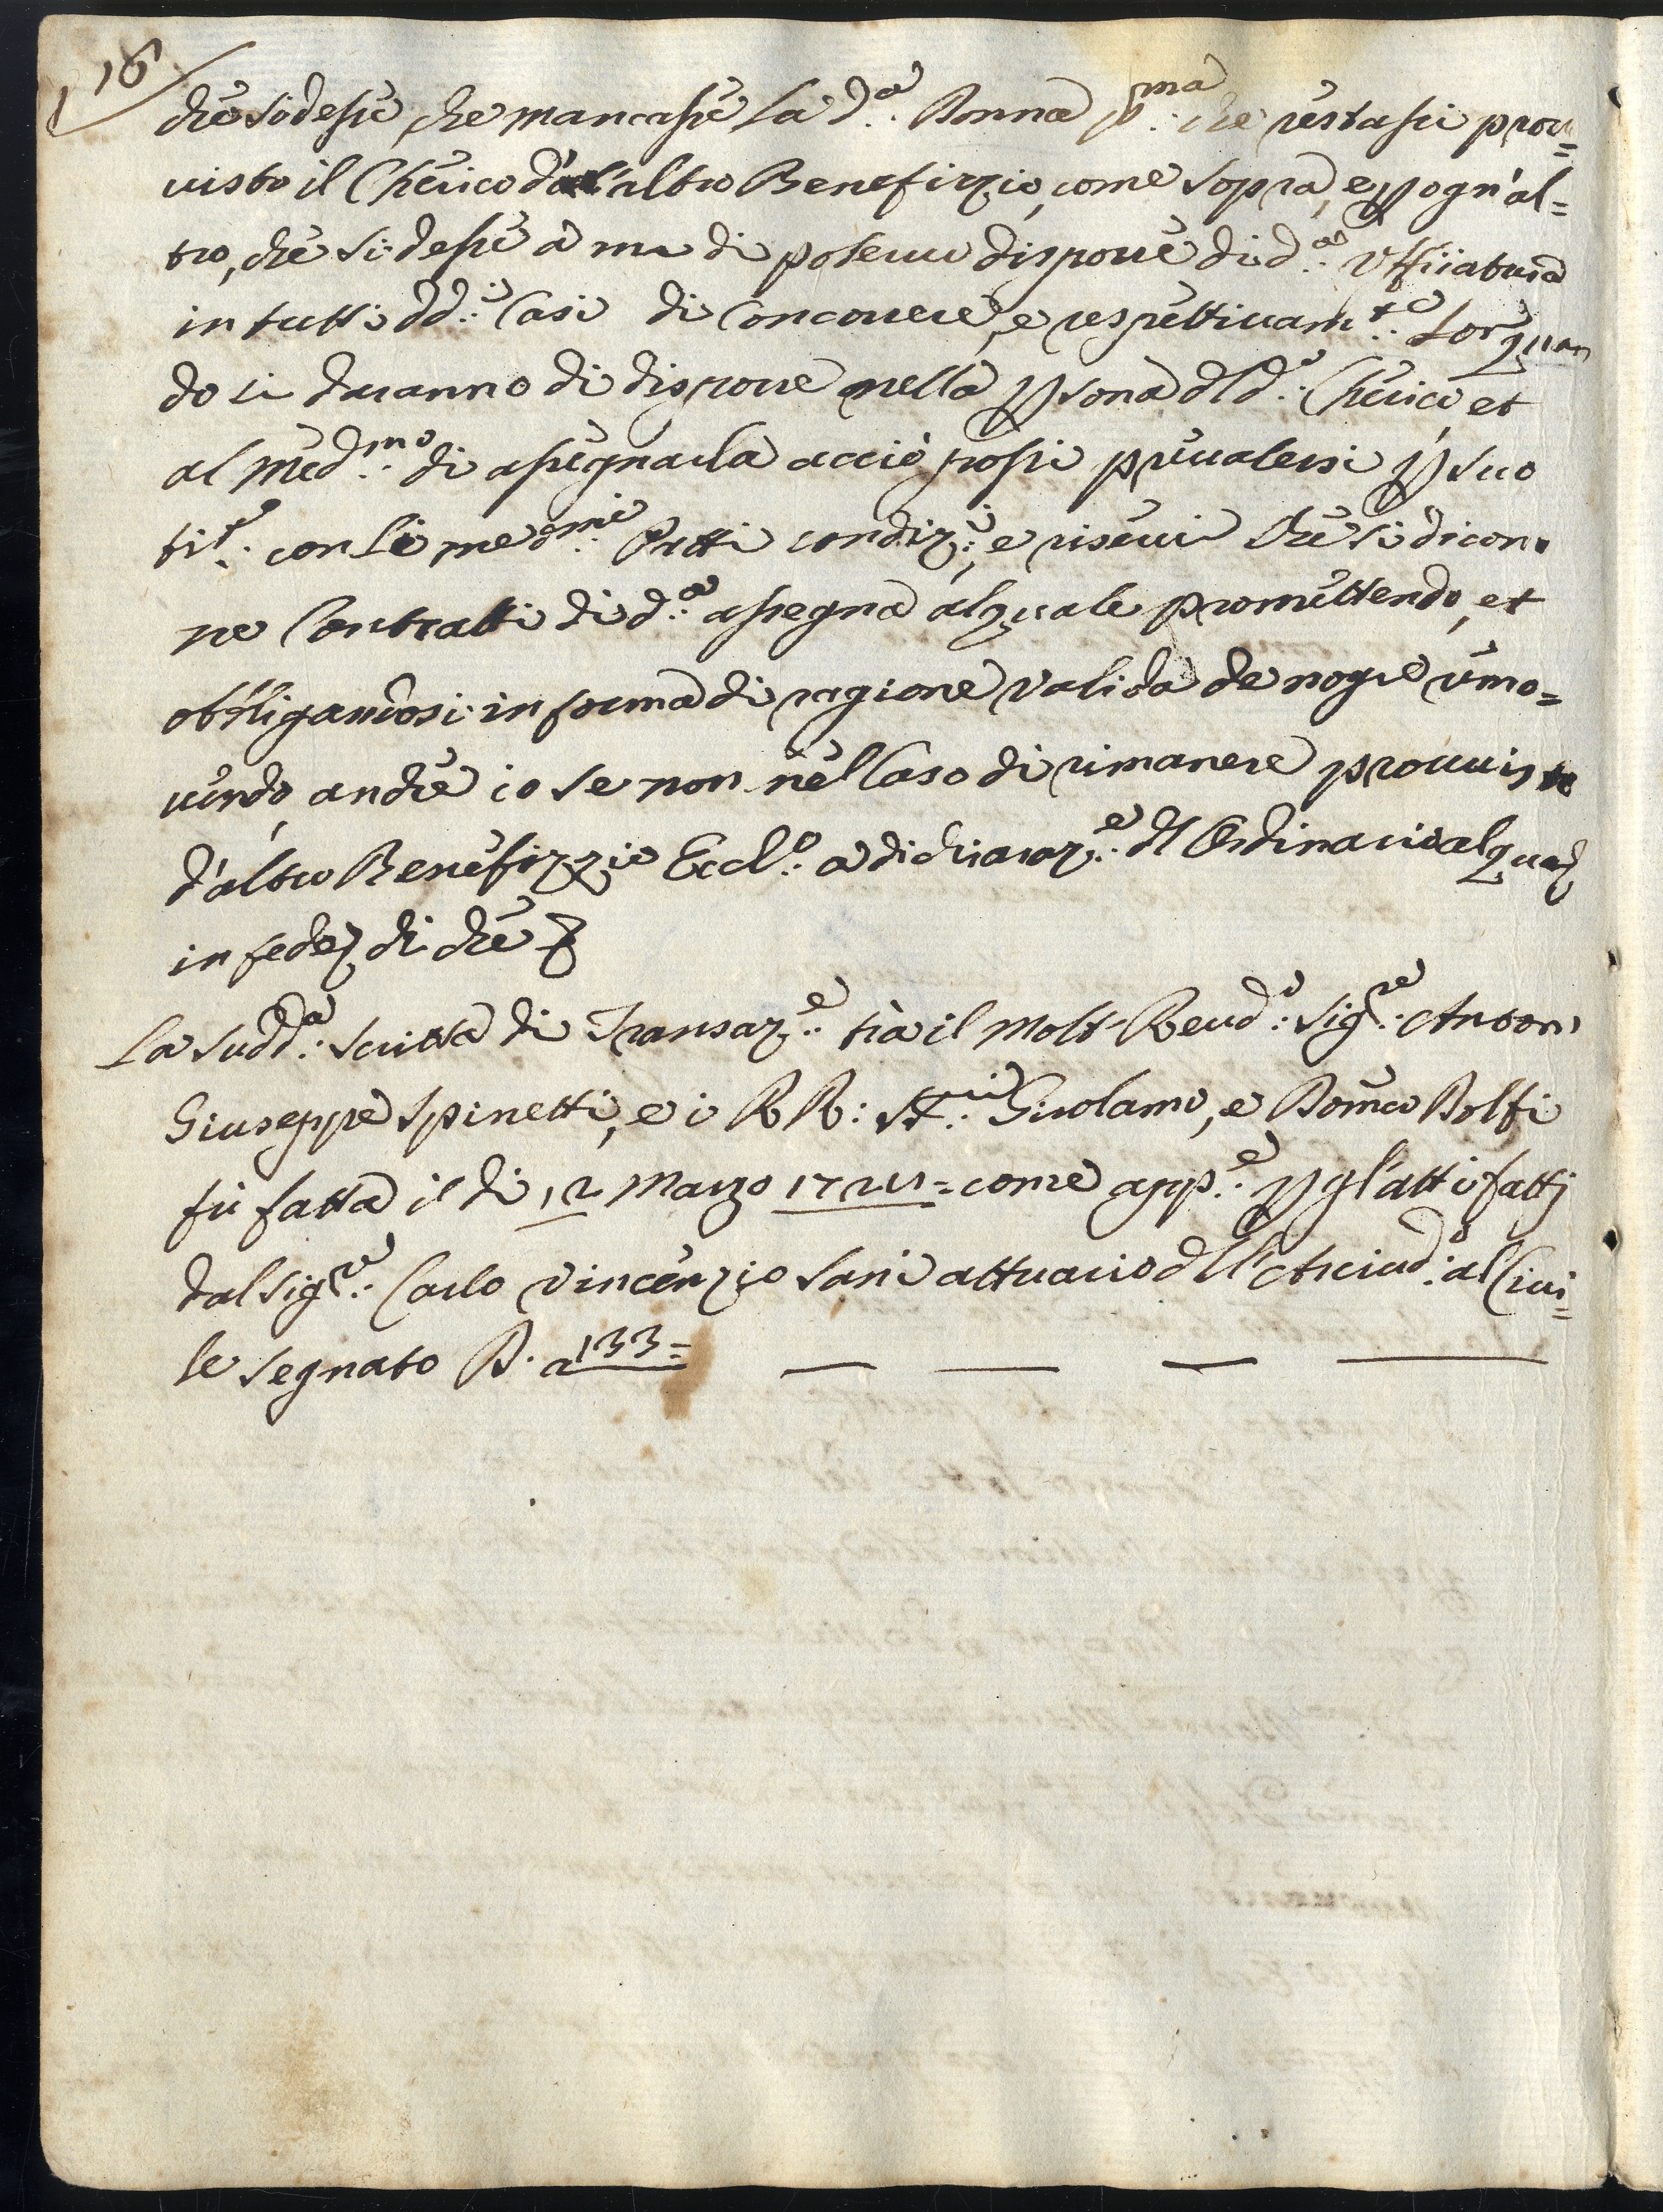 16
che si desse, che mancasse la d.ª Donna p.ma che restassi prou=
uisto il Cherico d'altro Benefizzio, come sopra, e p ogn'al=
tro, che si desse à me di potermi disporre di d.ª Vffiiatura
in tutti dd.i Casi di Concorrere, e respettiuam.te Lor quan
do si daranno di disporre nella psona dl d.º Cherico, et
al med.mo di assegnarla acciò possi preualersi p suo
tit.º con li med.mi Patti condiz.i, e riserui che si dicon
ne Contratti di d.ª assegna al quale promettendo, et
obbligandosi in forma di ragione valida de nogre rimo=
uendo, anche io se non nel Caso di rimanere prouuisto
d'altro Benefizzio Eccl.º à dichiaraz.e dl Ordinario al qual
in fede di che
La sudd.ª scritta di Transaz.e trà il Molt Reud.º Sig.re Anton
Giuseppe Spinetti, e i RR: Girolamo, e Domco Dolfi
fù fatta il dì 12 Marzo come app.e p gl'atti fatti
dal Sig.re Carlo Vincenzio Sani attuario dll' Arciud.º al Ciui=
le segnato B. a 133=